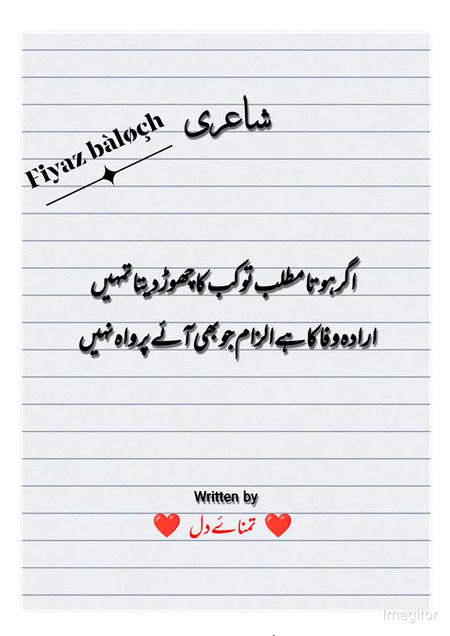 شاعری
Fiyaz bàløçh
اگر ہوتا مطلب تو کب کا چھوڑ دیتا تمہیں
ارادہ وفا کا ہے الزام جو بھی آئے پرواہ نہیں
Written by
❤️ تمنائے دل ❤️
Imagitor